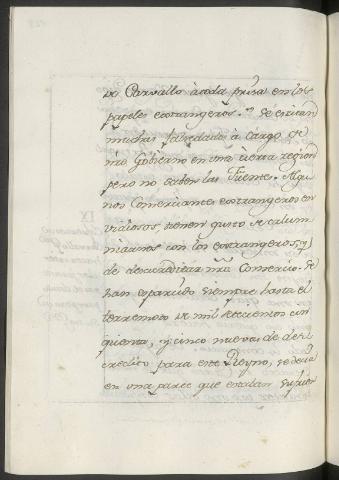 vo Carvallo à toda prisa en los
papeles extrangeros. Se esrican
muchas falsedades à cargo de
nro Gobierno en una cierta region
pero no saben las Fuentes. Algu
nos Comerciantes extrangeros en
vidiosos, tienen gusto de calum
niarnos con los extrangeros, y
de desacreditar nro Comercio. Se
han esparcido siempre hasta el
terremoto de mil setecientos cin
quenta, y cinco nuevas de des
credito para este Reyno, se decia
en una parte que estaban